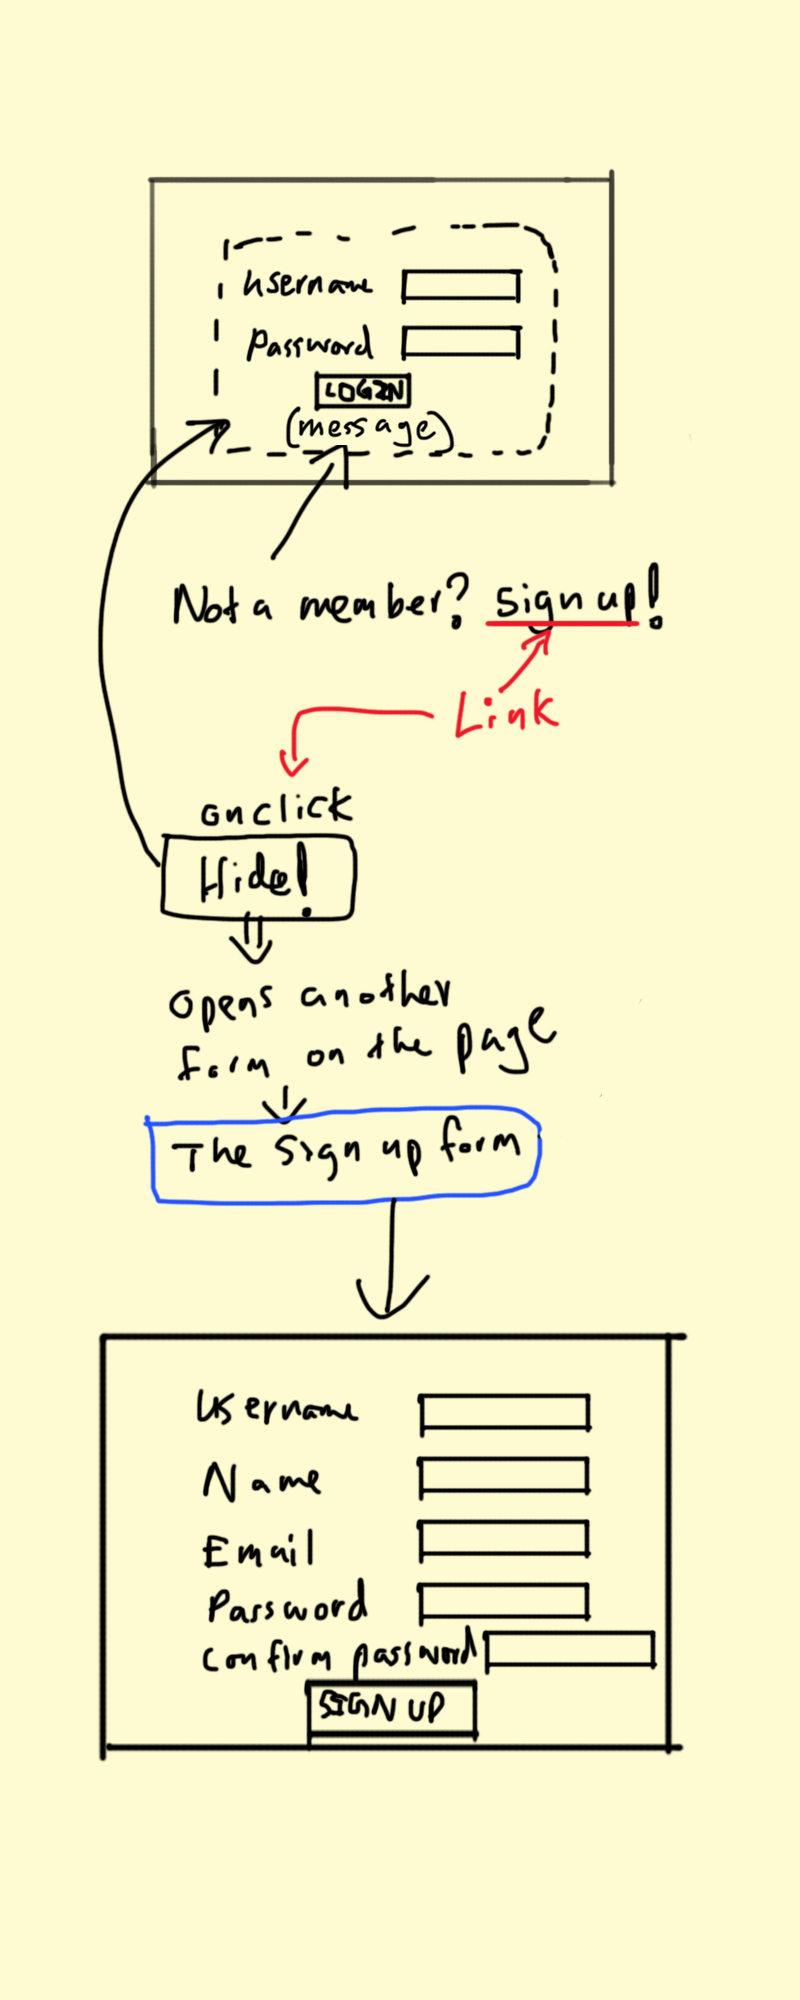 Username
Password
LOGIN
(message)
Not a member? Sign up!
Link
onclick
Hide!
Opens another
form on the page
The Sign up form
Username
Name
Email
Password
Confirm password
SIGN UP